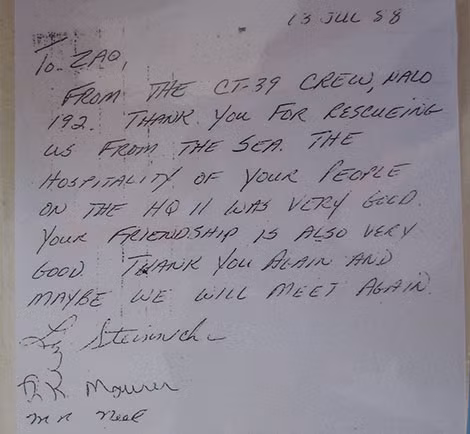 13 JUL 88
To ZAO,
FROM THE CT-39 CREW, NALO
192. THANK YOU FOR RESCUEING
US FROM THE SEA. THE
HOSPITALITY OF YOUR PEOPLE
ON THE HQ 11 WAS VERY GOOD.
YOUR FRIENDSHIP IS ALSO VERY
GOOD. THANK YOU AGAIN AND
MAYBE WE WILL MEET AGAIN.
K Maurer
m n neal